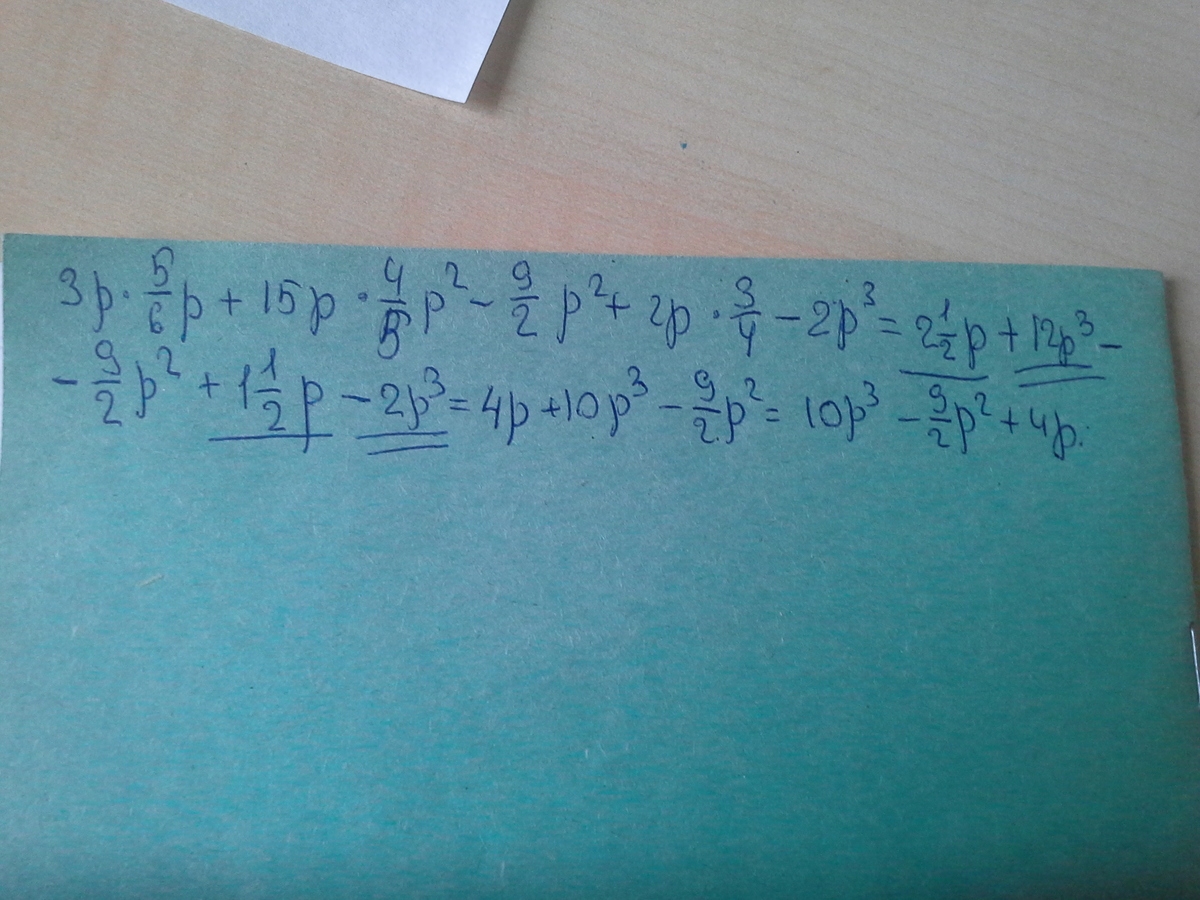 3p · 5/6 p + 15p · 4/5 p² - 9/2 p² + 2p · 3/4 - 2p³ = 2 1/2 p + 12p³ -
- 9/2 p² + 1 1/2 p - 2p³ = 4p + 10p³ - 9/2 p² = 10p³ - 9/2 p² + 4p.